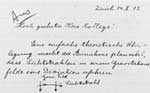 Zürich 14. X. 13.
Hoch geehrter Herr Kollege!
Eine einfache theoretische Über-
legung macht die Annahme plausibel,
dass Lichtstrahlen in einem Gravitations-
felde eine Deviation erfahren.
Lichtstrahl